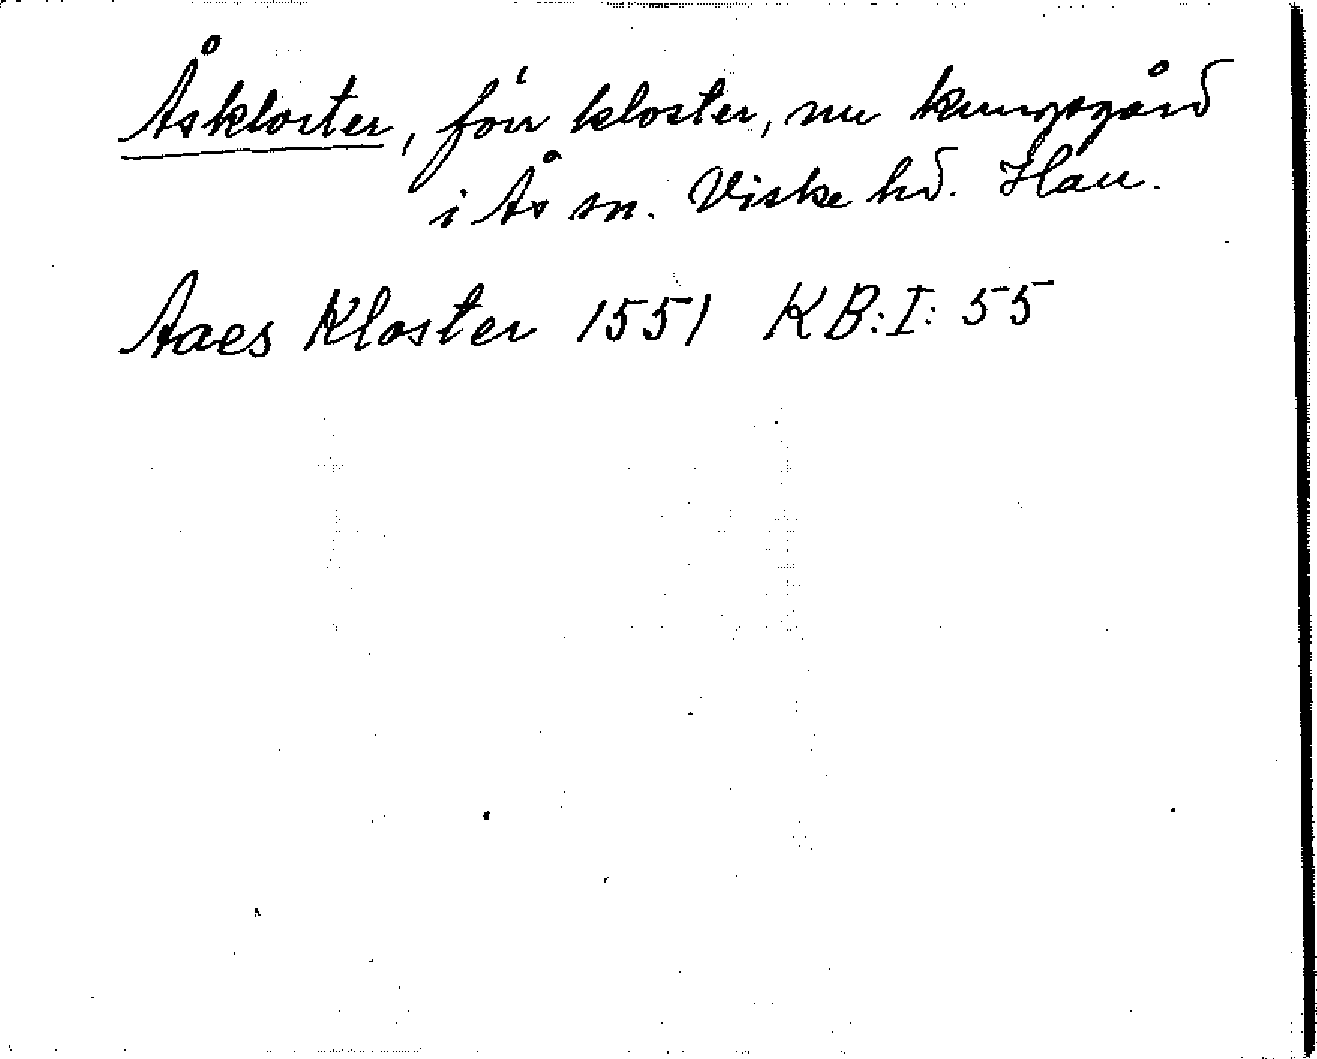 Åskloster, förr kloster, nu kungsgård
i Ås sn. Viske hd. Hall.
Aaes Kloster 1551 KB:I:55